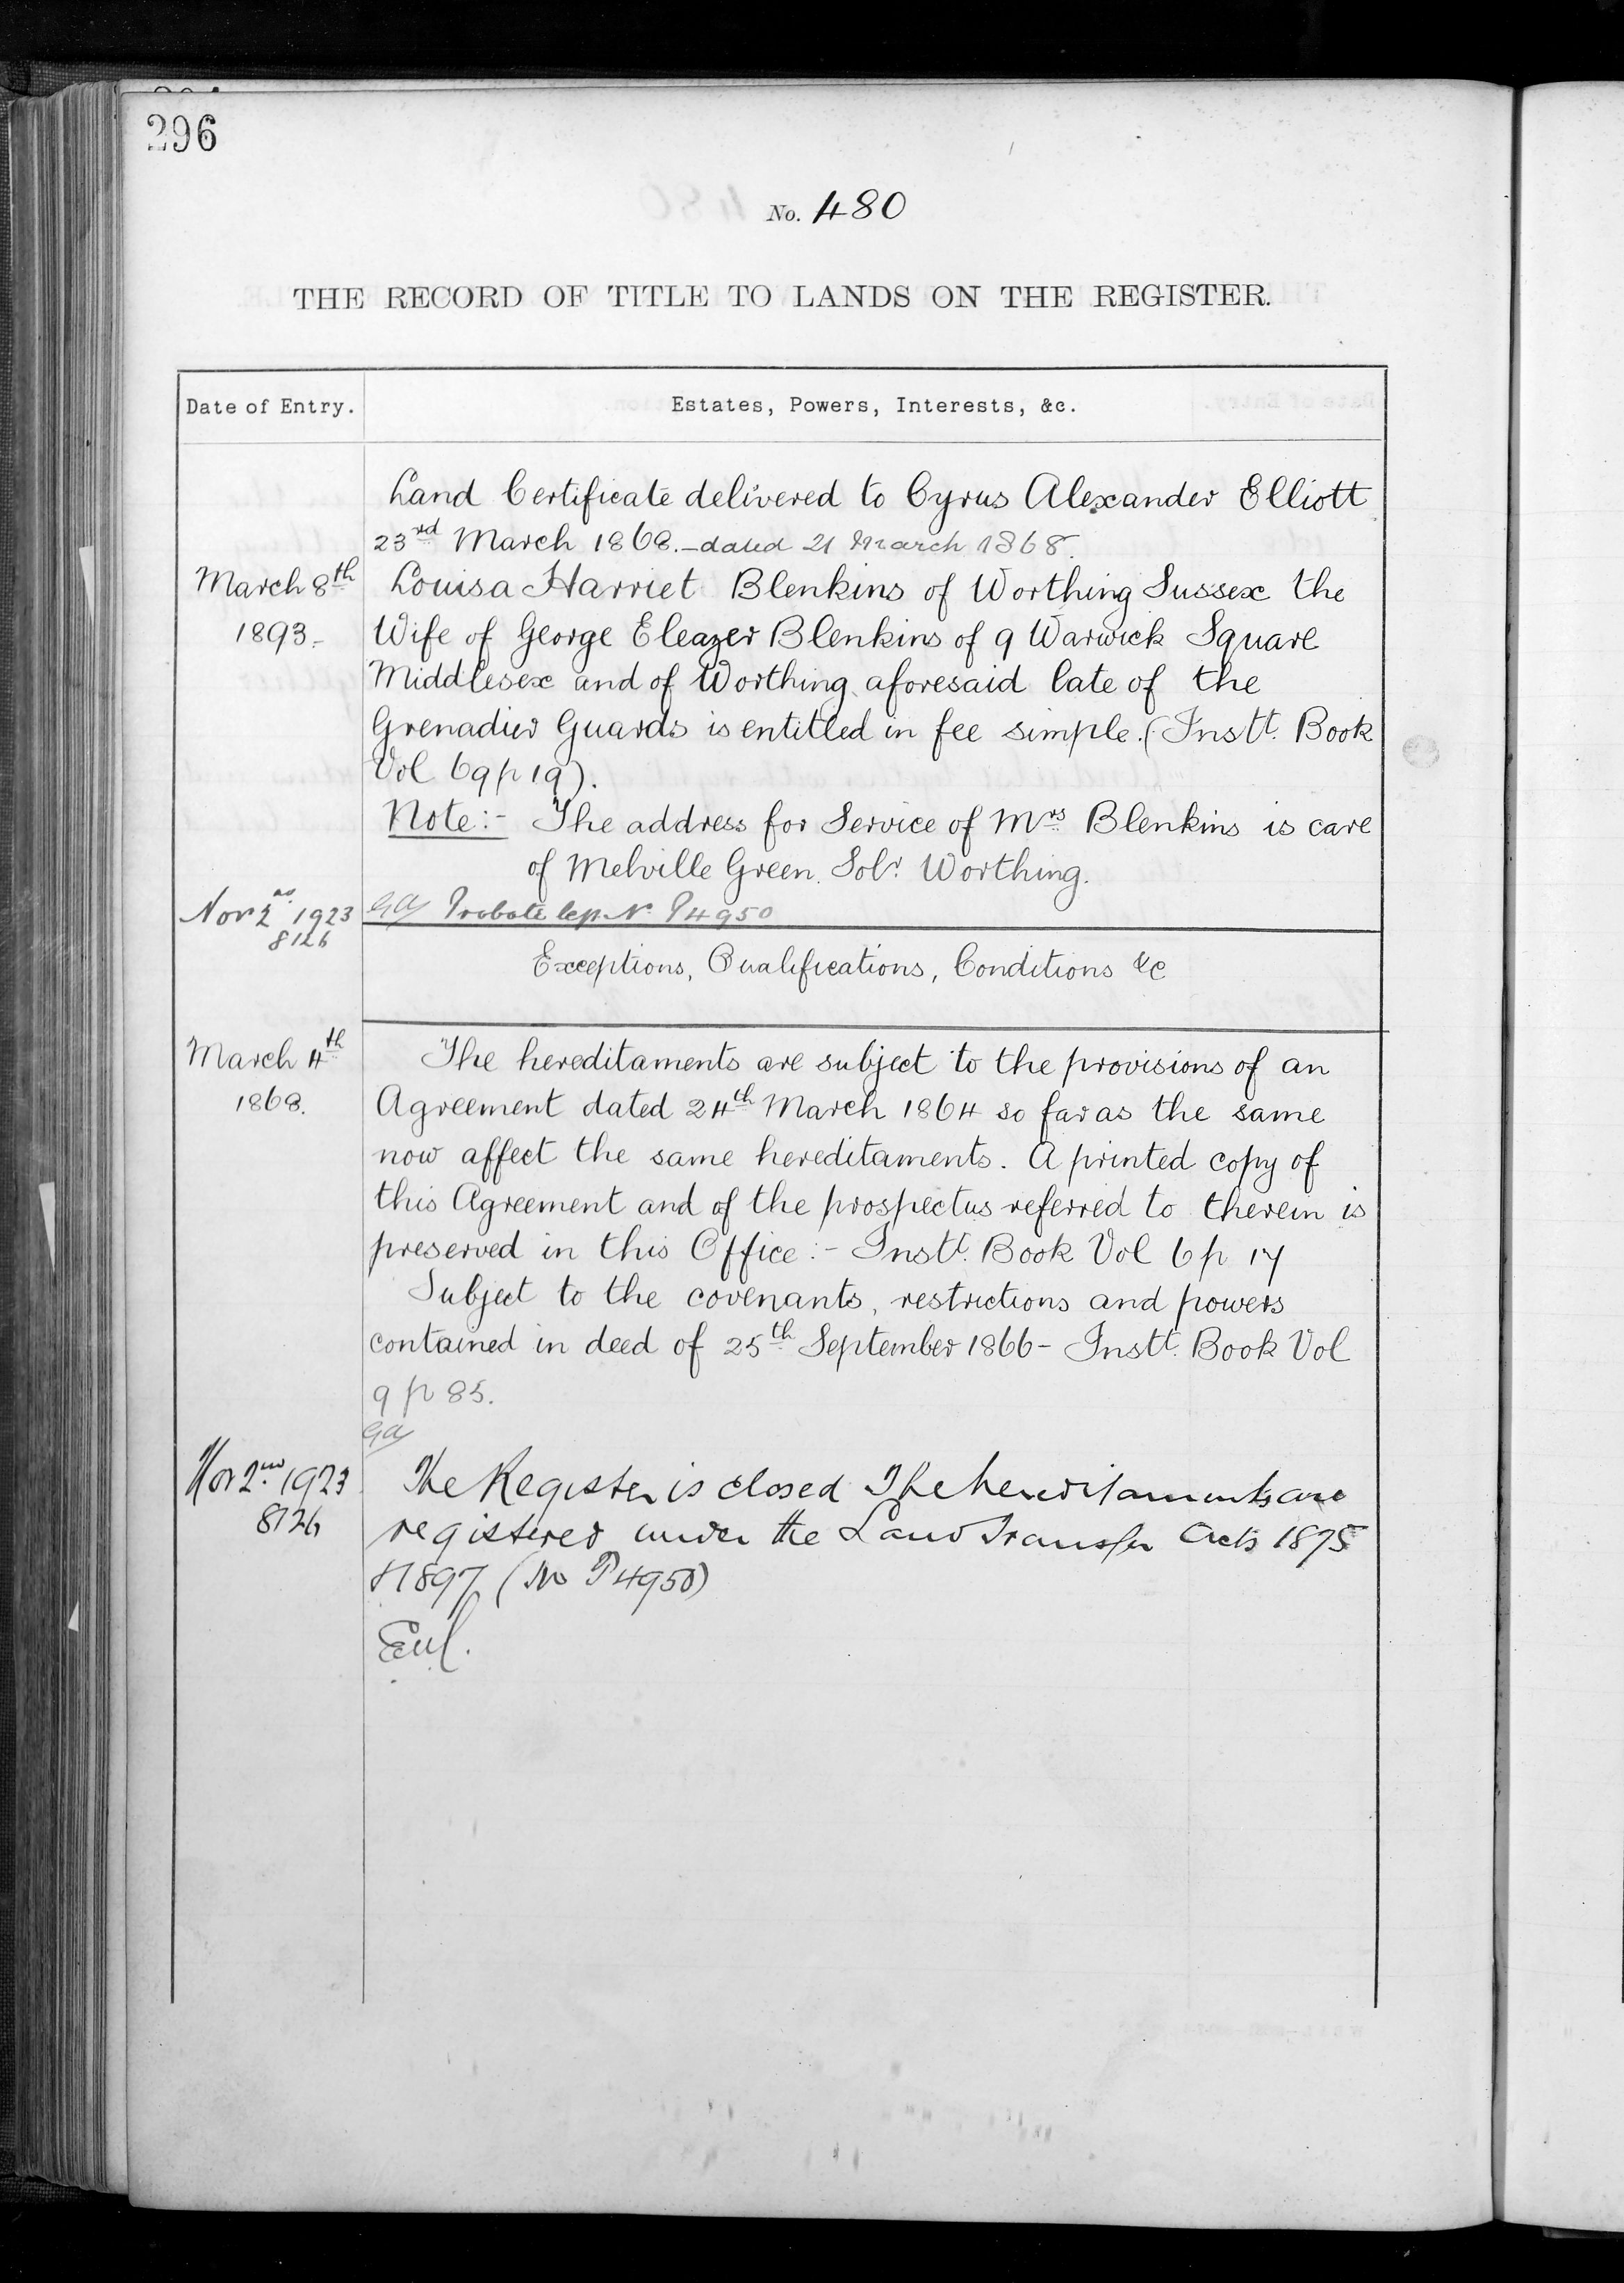 296
No. 480
THE RECORD OF TITLE TO LANDS ON THE REGISTER.
Date of Entry.
Estates, Powers, Interests, &c.
Land Certificate delivered to Cyrus Alexander Elliott
23rd March 1868. - dated 21 March 1868.
March 8th
1893.
Louisa Harriet Blenkins of Worthing Sussex the
Wife of George Eleazer Blenkins of 9 Warwick Square
Middlesex and of Worthing aforesaid late of the
Grenadier Guards is entitled in fee simple. (Instt. Book
Vol 69 p 19).
Note:- The address for Service of Mrs Blenkins is care
of Melville Green. Solr. Worthing.
Nov 2nd 1923
8126
Probate No P4950
Exceptions, Qualifications, Conditions &c
March 4th
1868.
The hereditaments are subject to the provisions of an
Agreement dated 24th March 1864 so far as the same
now affect the same hereditaments. A printed copy of
this Agreement and of the prospectus referred to therein is
preserved in this Office:- Instt. Book Vol 6 p 17
Subject to the covenants, restrictions and powers
contained in deed of 25th September 1866 - Instt. Book Vol
9 p 85.
Nov 2nd 1923
8126
The Register is closed The hereditaments are
registered under the Land Transfer Acts 1875
& 1897 (No P4950)